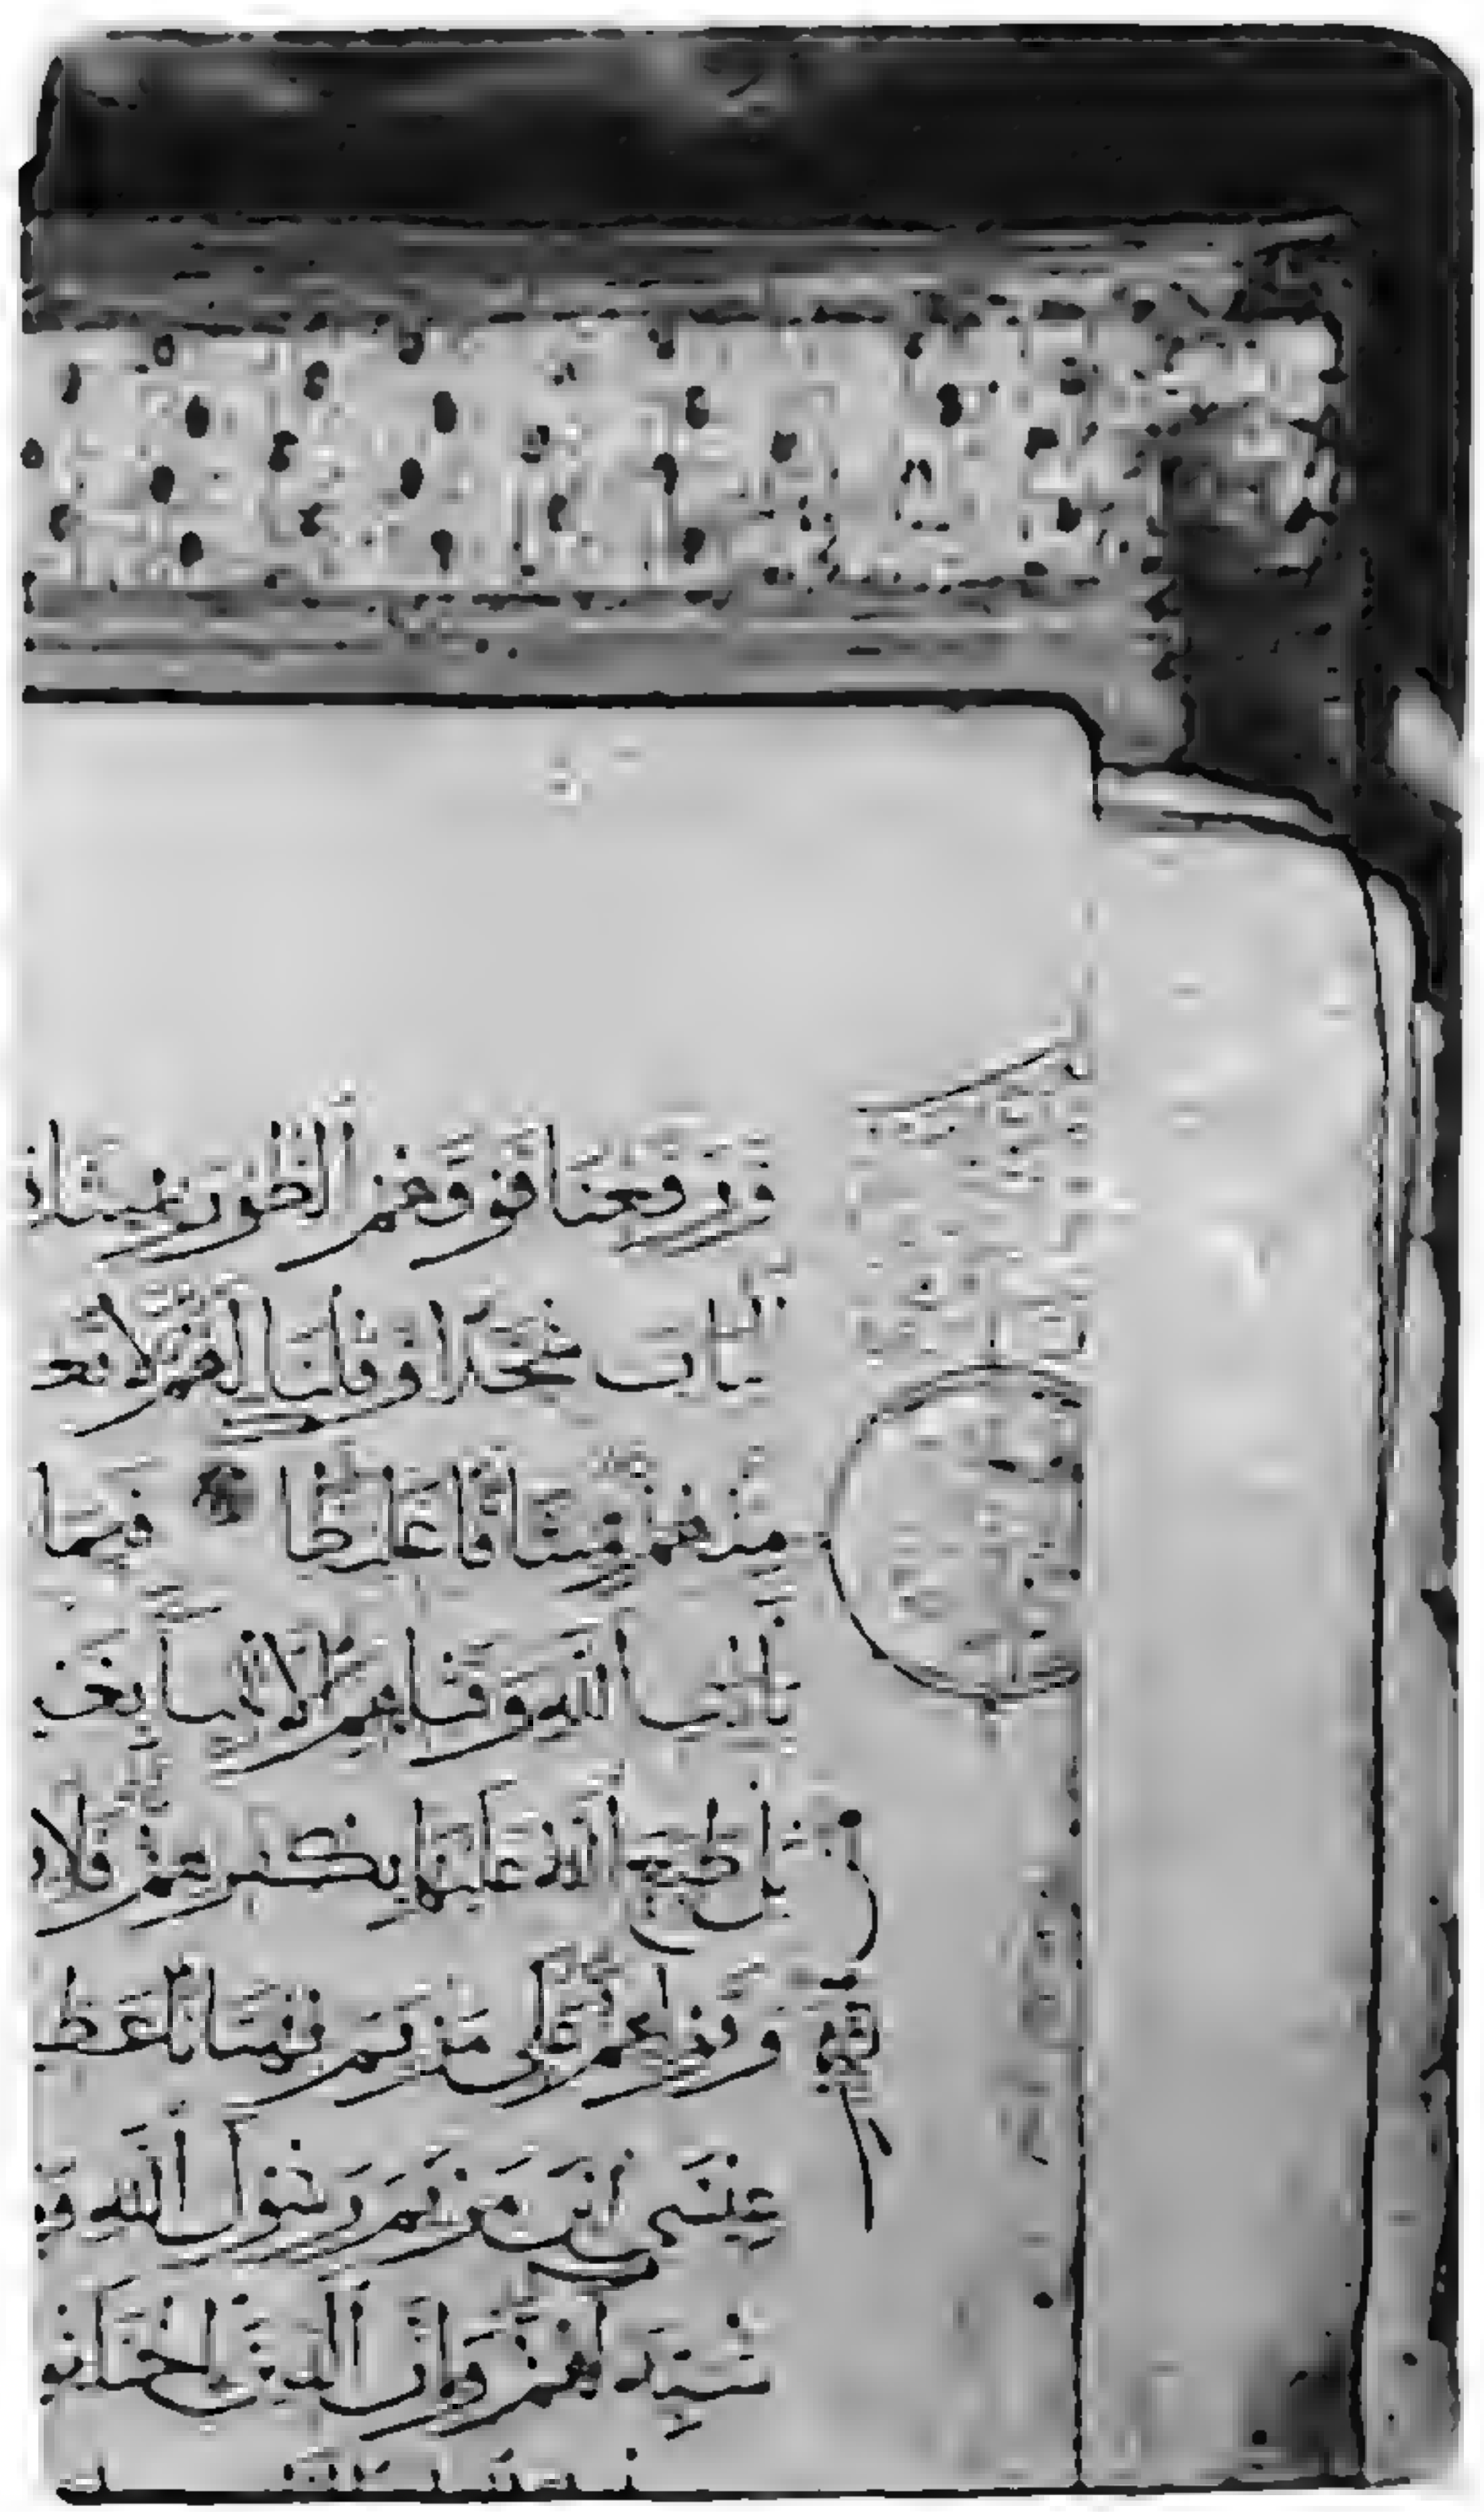 وَرَفَعْنَا فَوْقَهُمُ الطُّورَ بِمِيثَا
الباب سُجَّدًا وَقُلْنَا لَهُمْ لَا تَعْ
مِنْهُمْ مِيثَاقًا غَلِيظًا فَبِمَا
بآيات اللَّهِ وَقَتْلِهِمُ الْأَنْبِيَا بِغَيْ
بَلْ طَبَعَ اللَّهُ عَلَيْهَا بِكُفْرِهِمْ فَلَا
وَقَوْلِهِمْ عَلَى مَرْيَمَ بُهْتَانًا عَظِ
عِيسَى ابْنَ مَرْيَمَ رَسُولَ اللَّهِ وَ
شُبِّهَ لَهُمْ وَإِنَّ الَّذِينَ اخْتَلَفُو